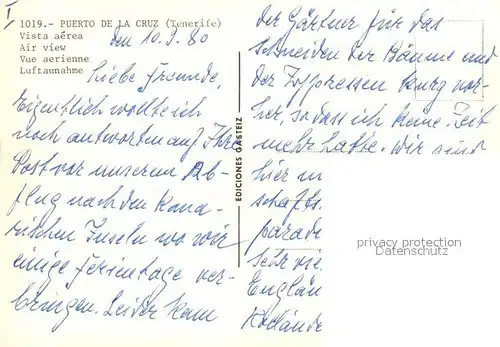 I
1019.- PUERTO DE LA CRUZ (Tenerife)
Vista aérea
Air view
Vue aerienne
Luftaunahme
den 10.9.80
Liebe Freunde,
Eigentlich wollte ich
noch antworten auf Ihre
Post vor unserem Ab-
flug nach den Kana-
rischen Inseln wo wir
einige Ferientage ver-
bringen. Leider kam
EDICIONES GASTEIZ
der Gärtner für das
Schneiden der Bäume und
der Zyppressen kurz vor-
her, so dass ich keine Zeit
mehr hatte. Wir sind
hier
schafts
parade
sehr vie
Englän
Hollände
privacy protection
Datenschutz